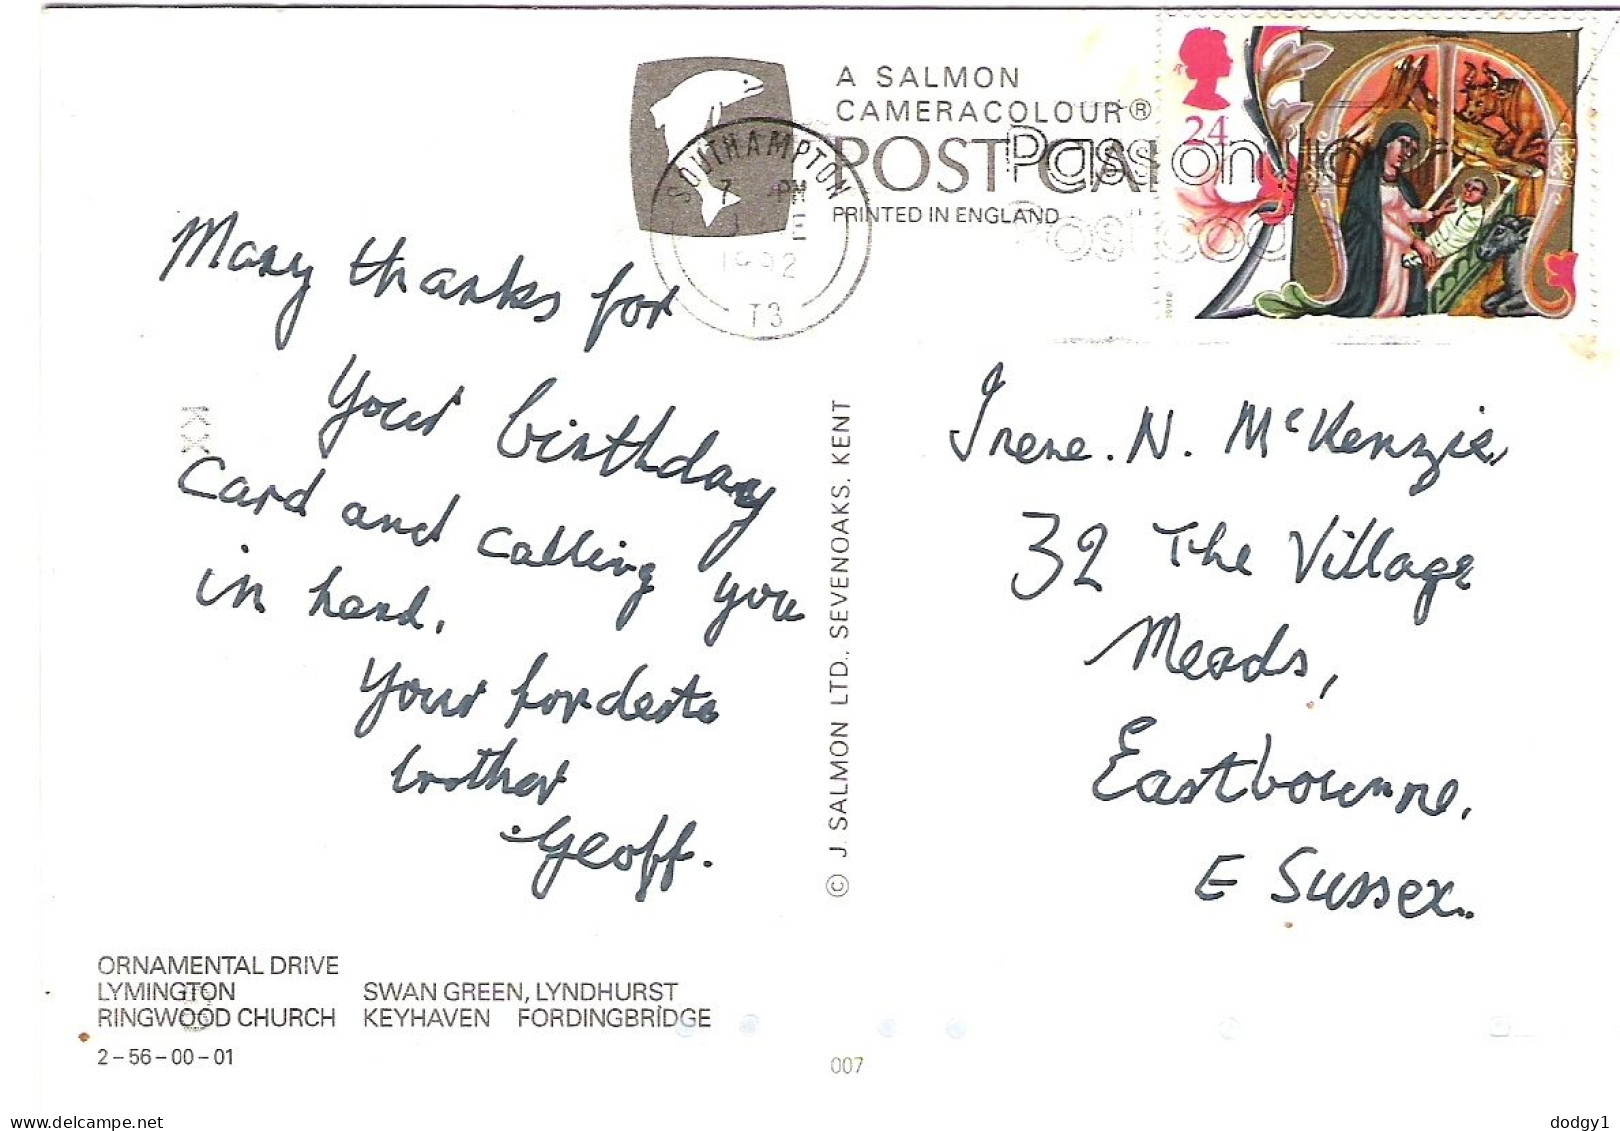 A SALMON
CAMERACOLOUR®
POST CA
PRINTED IN ENGLAND
SOUTHAMPTON
7 PM
1992
T3
Pass on
Postcod
24
Many thanks for
your birthday
card and calling you
in hand.
Your fondest
brother
Geoff.
© J. SALMON LTD., SEVENOAKS, KENT
Irene. N. McKenzie,
32 The Village
Meads,
Eastbourne,
E Sussex.
ORNAMENTAL DRIVE
LYMINGTON SWAN GREEN, LYNDHURST
RINGWOOD CHURCH KEYHAVEN FORDINGBRIDGE
2–56–00–01
007
dodgy1